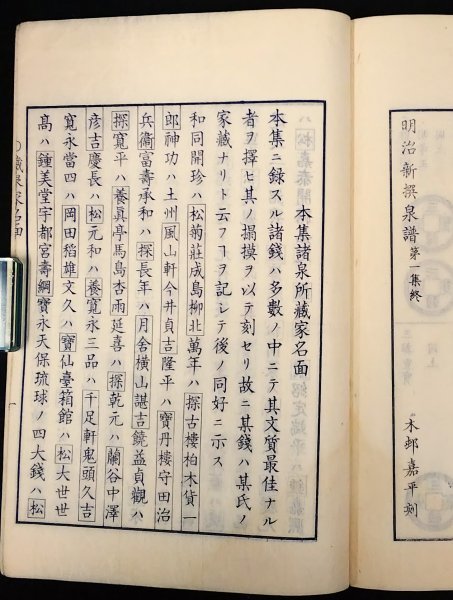 明治新撰泉譜第一集終
木邨嘉平刻
本集諸泉所藏家名面
本集ニ録スル諸錢ハ多數ノ中ニテ其文質最佳ナル
者ヲ擇ヒ其ノ搨摸ヲ以テ刻セリ故ニ某錢ハ某氏ノ
家藏ナリト云フヿヲ記シテ後ノ同好ニ示ス
和同開珍ハ松菊莊成島柳北萬年ハ探古樓柏木貨一
郎神功ハ土州風山軒今井貞吉隆平ハ寶丹樓守田治
兵衞富壽承和ハ探長年ハ月舍橫山諶吉饒益貞觀ハ
探寬平ハ養眞亭馬島杏雨延喜ハ探乾元ハ蘭谷中澤
彦吉慶長ハ松元和ハ養寬永三品ハ千足軒鬼頭久吉
寬永當四ハ岡田稻雄文久ハ寶仙臺箱館ハ松大世世
高ハ鍾美堂宇都宮壽綱寶永天保琉球ノ四大錢ハ松